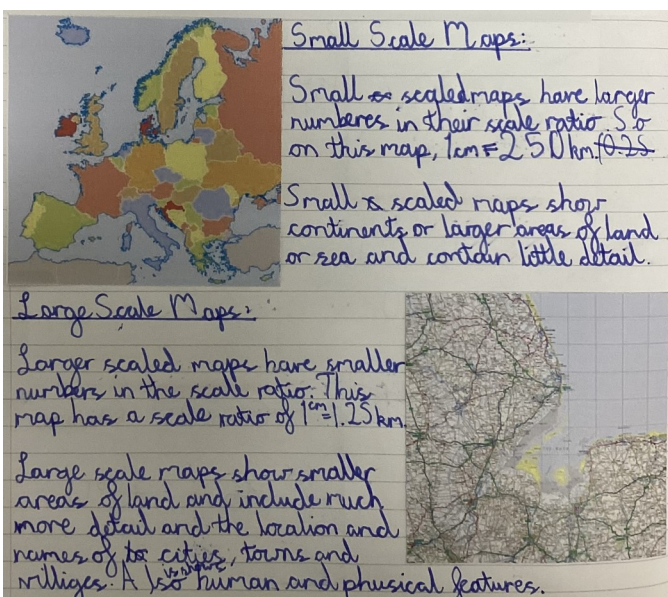 Small Scale Maps:
Small scaled maps have larger
numberes in their scale ratio. So
on this map, 1cm = 250km.
Small scaled maps show
continents or larger areas of land
or sea and contain little detail.
Large Scale Maps:
Larger scaled maps have smaller
numbers in the scale ratio. This
map has a scale ratio of 1cm=1.25km.
Large scale maps show smaller
areas of land and include much
more detail and the location and
names of cities, towns and
villiges. Also is shows human and physical features.